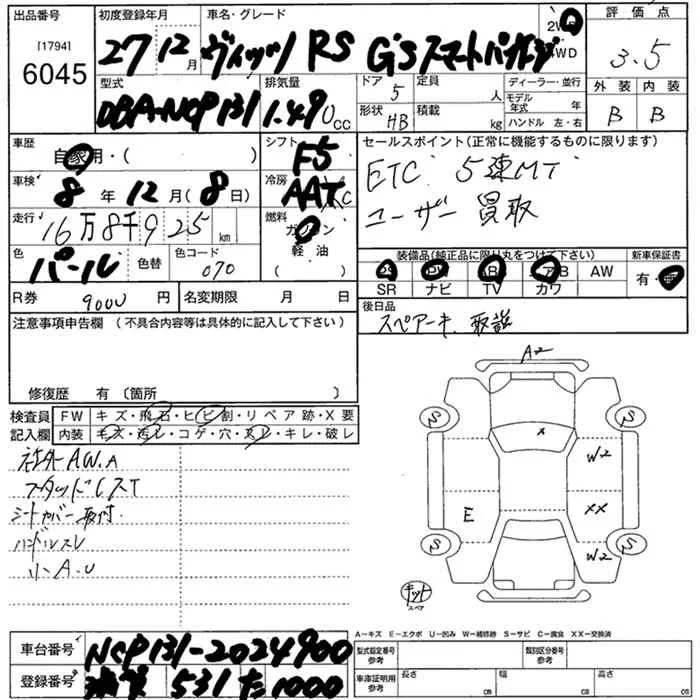 出品番号
[1794]
6045
初度登録年月
27 12月
車名・グレード
ヴィッツ RS G'sスマートパッケージ
2WD
4WD
評価点
3.5
外装 内装
B B
型式
DBA-NCP131
排気量
1.490cc
ドア 5
形状 HB
定員 人
積載 kg
ディーラー・並行
モデル年式 年
ハンドル 左・右
車歴
自家用・( )
シフト
F5
車検
8年12月(8日)
冷房
AAC
走行
16万8千925 km
燃料
ガソリン
軽油
( )
色
パール
色替
色コード
070
R券 9000 円
名変期限 月 日
セールスポイント(正常に機能するものに限ります)
ETC 5速MT
ユーザー買取
装備品(純正品に限り丸をつけて下さい)
PS PW AB AW
SR ナビ TV カワ
新車保証書
有・無
後日品
スペアーキ、取説
注意事項申告欄 (不具合内容等は具体的に記入して下さい)
修復歴 有 〔箇所 〕
検査員記入欄
FW キズ・飛石・ヒビ割・リペア跡・X要
内装 キズ・汚レ・コゲ・穴・スレ・キレ・破レ
社外AW.A
スタッドレスT
シートカバー取付
ハンドルスレ
小A.U
A2
X
S S
W2
E
XX
W2
S S
キット
スペア
A−キズ E−エクボ U−凹み W−補修跡 S−サビ C−腐食 XX−交換済
車台番号
NCP131-2024900
登録番号
531 た 1000
型式指定番号
参考
類別区分番号
参考
車庫証明用
参考
長さ cm
幅 cm
高さ cm